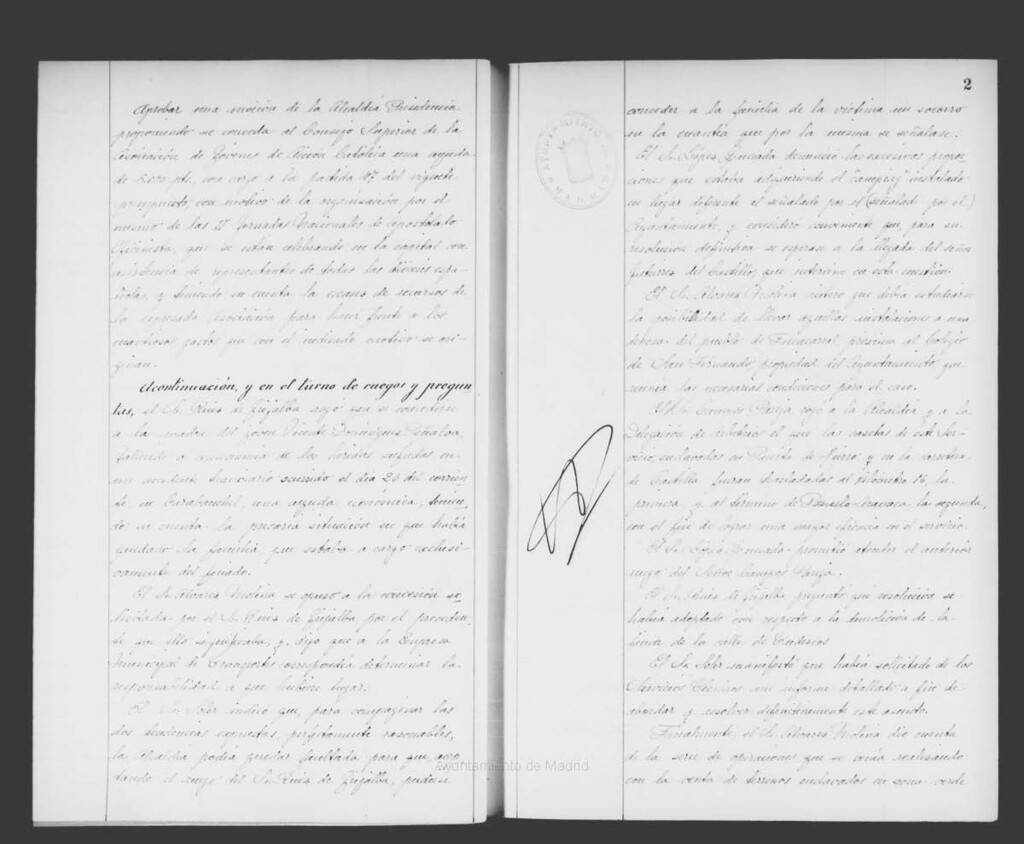 Aprobar una moción de la Alcaldía Presidencia
proponiendo se conceda al Consejo Superior de la
Asociación de Jóvenes de Acción Católica una ayuda
de 5.000 pts. con cargo a la partida del vigente
presupuesto, con motivo de la organización por el
mismo de las Jornadas Nacionales de Apostolado
que se están celebrando en la capital con
asistencia de representantes de todas las diócesis espa-
ñolas, y teniendo en cuenta la escasez de recursos de
la expresada Asociación para hacer frente a los
cuantiosos gastos que con el indicado motivo se ori-
ginan.
Acontinuación, y en el turno de ruegos y pregun-
tas, el Sr. Ruiz de Grijalba rogó que se concediese
a la madre del joven Vicente Domínguez Peñalva,
fallecido a consecuencia de las heridas sufridas en
un accidente tranviario ocurrido el día 23 del corrien-
te en Carabanchel, una ayuda económica, tenien-
do en cuenta la precaria situación en que había
quedado la familia, que estaba a cargo exclusi-
vamente del finado.
El Sr. Alvarez Molina se opuso a la concesión so-
licitada por el Sr. Ruiz de Grijalba, por el preceden-
te que ello significaba, y dijo que a la Empresa
Municipal de Transportes correspondía determinar la
responsabilidad a que hubiere lugar.
El Sr. Soler indicó que, para compaginar las
dos tendencias expuestas, perfectamente razonables,
la Alcaldía podía quedar facultada para que, acep-
tando el ruego del Sr. Ruiz de Grijalba, pudiese
2
conceder a la familia de la víctima un socorro
en la cuantía que por la misma se señalase.
El Sr. López Quesada denunció las excesivas propor-
ciones que estaba adquiriendo el "camping" instalado
en lugar diferente al señalado por el (señalado por el)
Ayuntamiento, y consideró conveniente que para su
resolución definitiva se esperase a la llegada del señor
Gutiérrez del Castillo, que intervino en esta cuestión.
El Sr. Alvarez Molina que debía estudiarse
la posibilidad de llevar aquellas instalaciones a una
dehesa del pueblo de Fuencarral próxima al Colegio
de San Fernando, propiedad del Ayuntamiento que
reunía las necesarias condiciones para el caso.
El Sr. Campos Pareja rogó a la Alcaldía y a la
Delegación de Arbitrios el que las casetas de este Ser-
vicio, enclavadas en Puerta de Hierro y en la carretera
de Castilla, fueran trasladadas al kilómetro 16, la
primera, y al término de Pozuelo-Aravaca, la segunda,
con el fin de lograr una mayor eficacia en el servicio.
El Sr. López Quesada prometió atender el anterior
ruego del Señor Campos Pareja.
El Sr. Ruiz de Grijalba preguntó qué resolución se
había adoptado con respecto a la demolición de la
finca de la calle de
El Sr. Soler manifestó que había solicitado de los
Servicios Técnicos un informe detallado a fin de
abordar y resolver definitivamente este asunto.
Finalmente, el Sr. Alvarez Molina dio cuenta
de la serie de operaciones que se venía realizando
con la venta de terrenos enclavados en zona verde
AYUNTAMIENTO
Ayuntamiento de Madrid